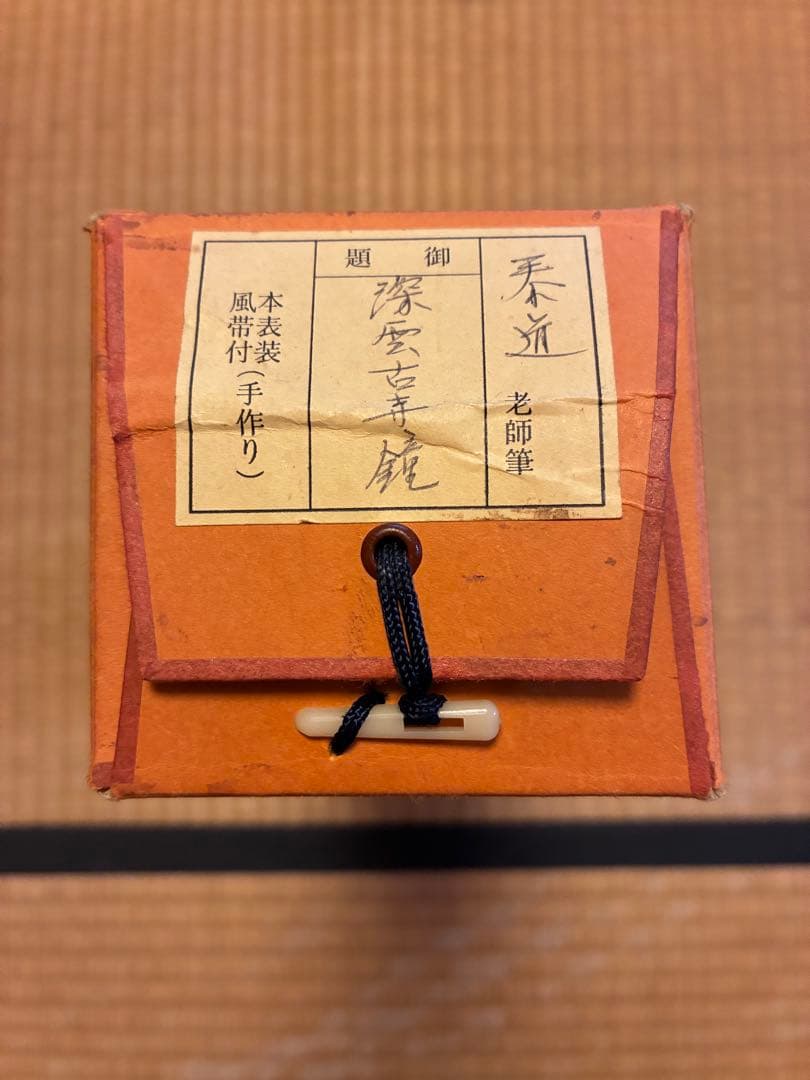 泰道 老師筆
御題
深雲古寺鐘
本表装
風帯付(手作り)